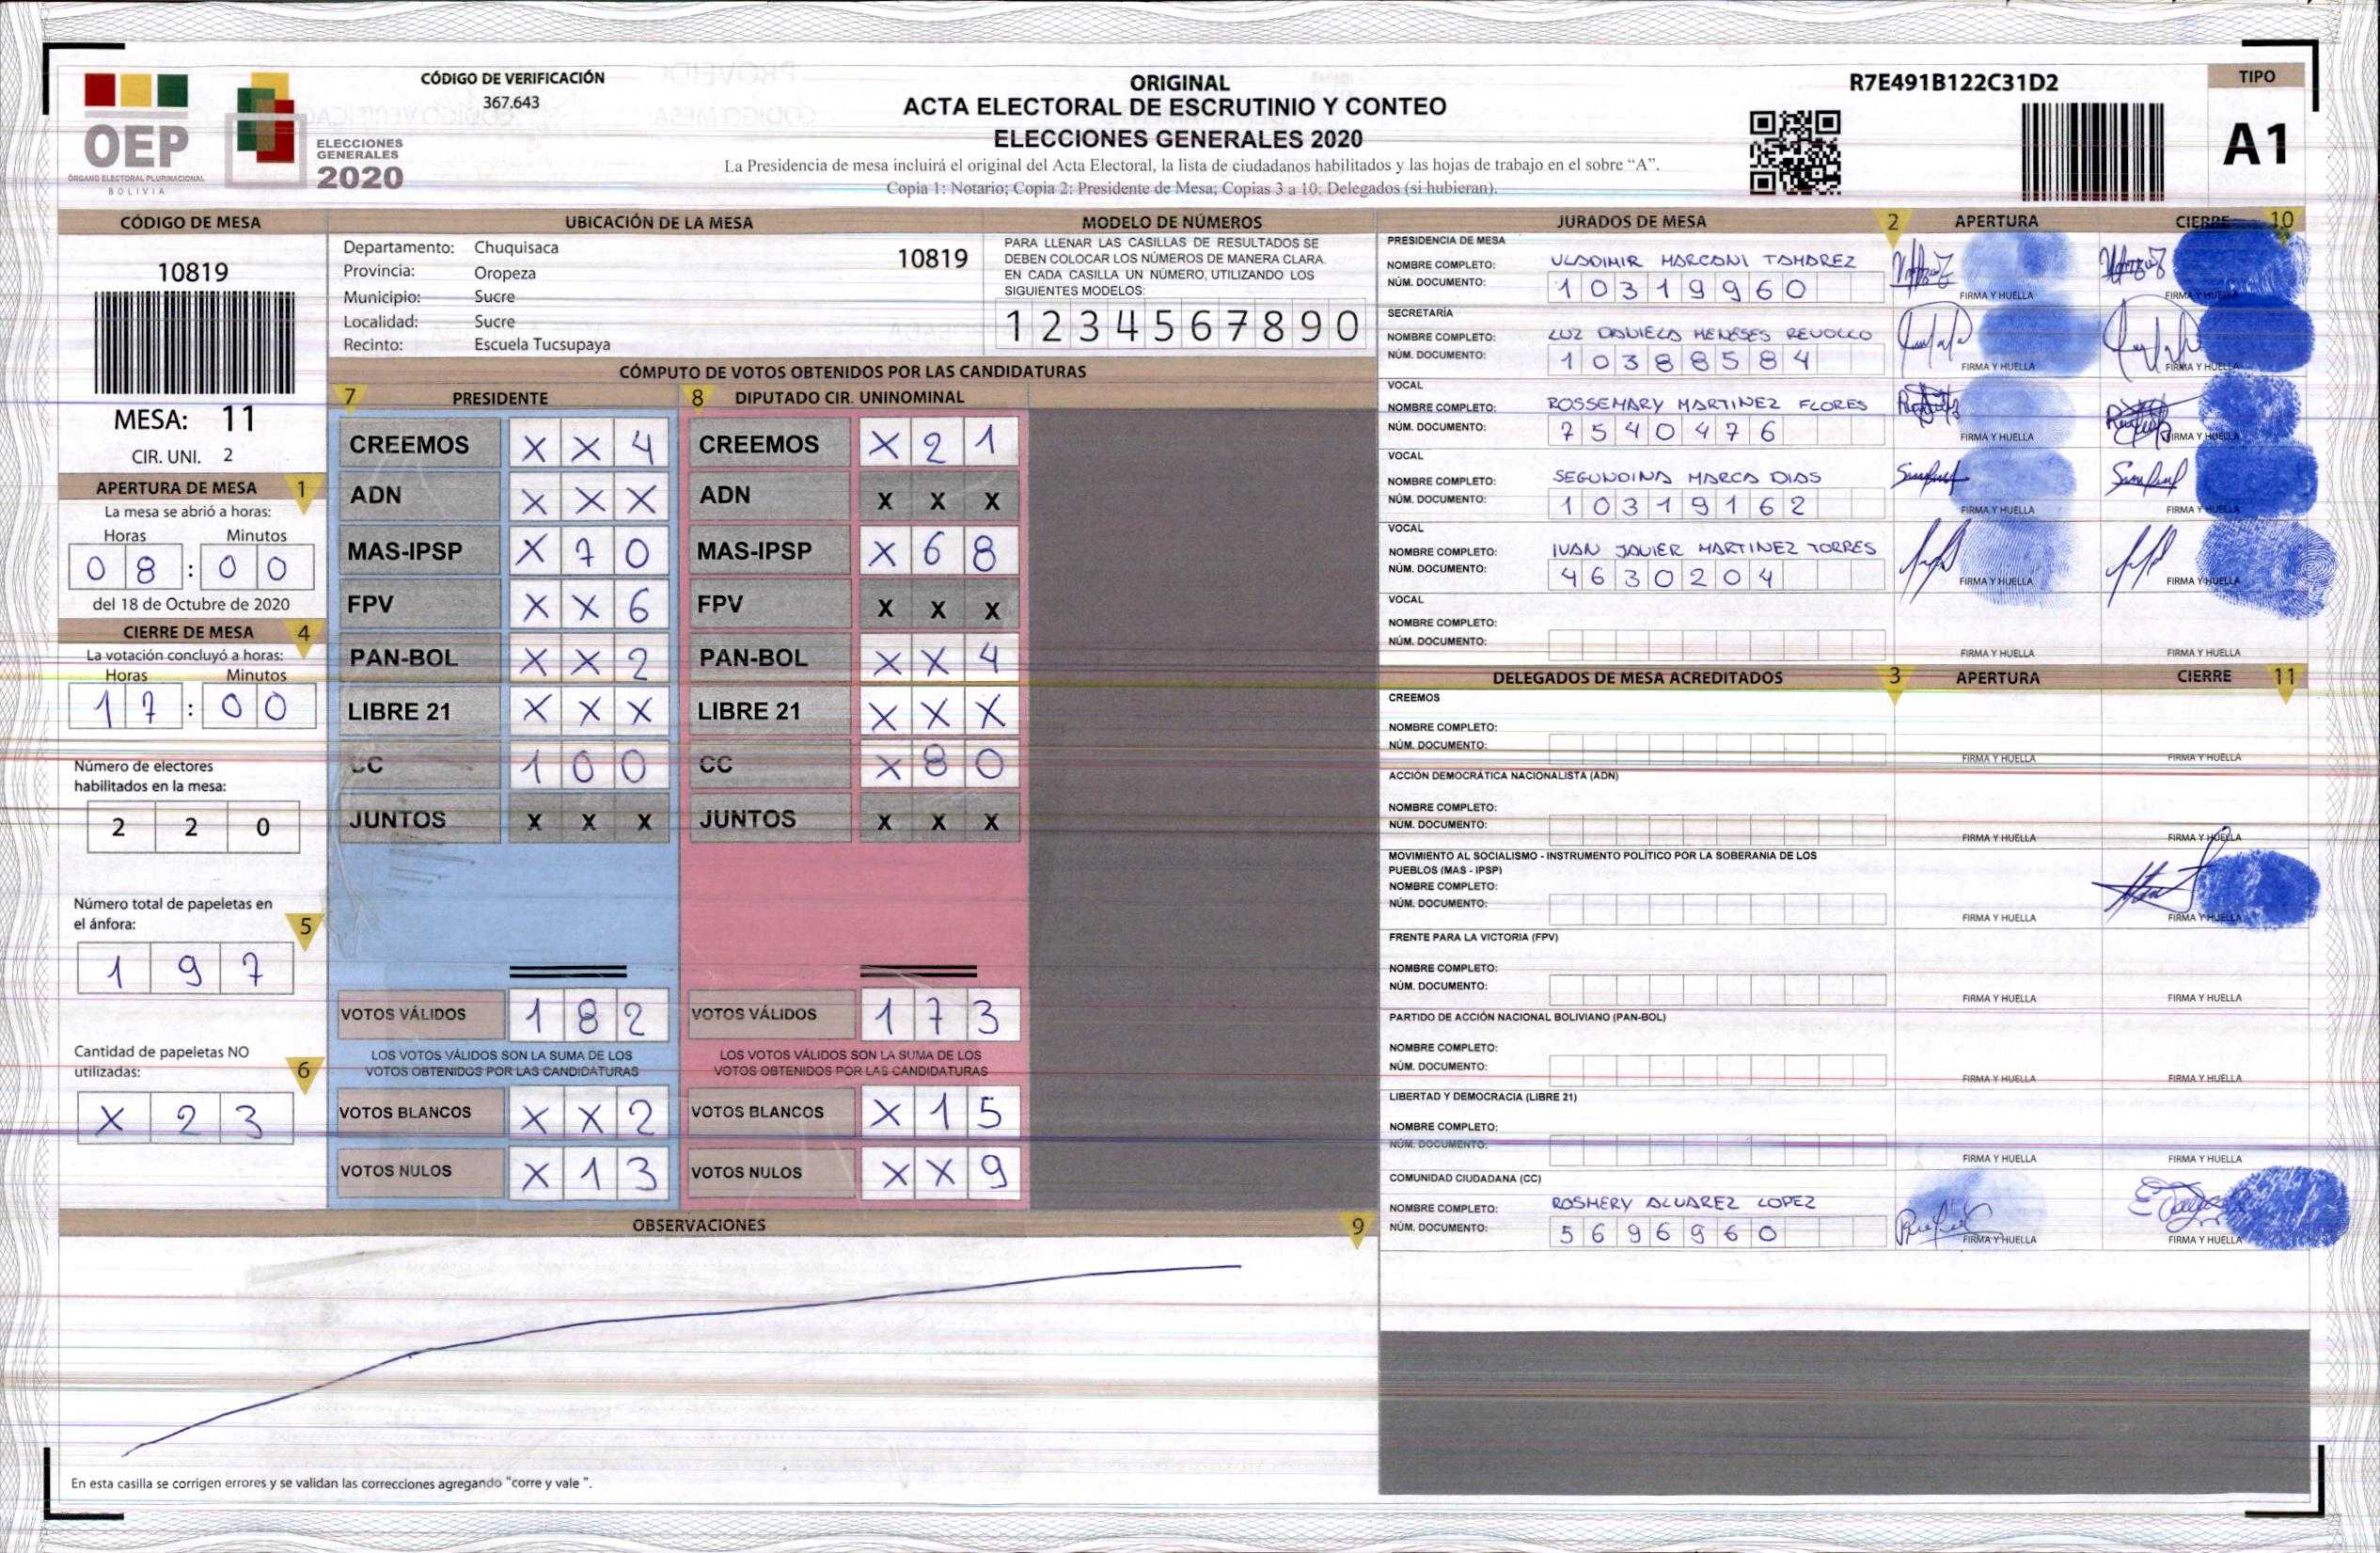 OEP
ÓRGANO ELECTORAL PLURINACIONAL
BOLIVIA
ELECCIONES
GENERALES
2020
CÓDIGO DE VERIFICACIÓN
367.643
ORIGINAL
ACTA ELECTORAL DE ESCRUTINIO Y CONTEO
ELECCIONES GENERALES 2020
La Presidencia de mesa incluirá el original del Acta Electoral, la lista de ciudadanos habilitados y las hojas de trabajo en el sobre “A”.
Copia 1: Notario; Copia 2: Presidente de Mesa; Copias 3 a 10; Delegados (si hubieran).
R7E491B122C31D2
TIPO
A1
CÓDIGO DE MESA
10819
MESA: 11
CIR. UNI. 2
APERTURA DE MESA 1
La mesa se abrió a horas:
Horas Minutos
0 8 : 0 0
del 18 de Octubre de 2020
CIERRE DE MESA 4
La votación concluyó a horas:
Horas Minutos
1 7 : 0 0
Número de electores
habilitados en la mesa:
2 2 0
Número total de papeletas en
el ánfora: 5
1 9 7
Cantidad de papeletas NO
utilizadas: 6
X 2 3
UBICACIÓN DE LA MESA
Departamento: Chuquisaca 10819
Provincia: Oropeza
Municipio: Sucre
Localidad: Sucre
Recinto: Escuela Tucsupaya
MODELO DE NÚMEROS
PARA LLENAR LAS CASILLAS DE RESULTADOS SE
DEBEN COLOCAR LOS NÚMEROS DE MANERA CLARA.
EN CADA CASILLA UN NÚMERO, UTILIZANDO LOS
SIGUIENTES MODELOS:
1 2 3 4 5 6 7 8 9 0
CÓMPUTO DE VOTOS OBTENIDOS POR LAS CANDIDATURAS
7 PRESIDENTE 8 DIPUTADO CIR. UNINOMINAL
CREEMOS X X 4 CREEMOS X 2 1
ADN X X X ADN X X X
MAS-IPSP X 7 0 MAS-IPSP X 6 8
FPV X X 6 FPV X X X
PAN-BOL X X 2 PAN-BOL X X 4
LIBRE 21 X X X LIBRE 21 X X X
CC 1 0 0 CC X 8 0
JUNTOS X X X JUNTOS X X X
VOTOS VÁLIDOS 1 8 2 VOTOS VÁLIDOS 1 7 3
LOS VOTOS VÁLIDOS SON LA SUMA DE LOS LOS VOTOS VÁLIDOS SON LA SUMA DE LOS
VOTOS OBTENIDOS POR LAS CANDIDATURAS VOTOS OBTENIDOS POR LAS CANDIDATURAS
VOTOS BLANCOS X X 2 VOTOS BLANCOS X 1 5
VOTOS NULOS X 1 3 VOTOS NULOS X X 9
OBSERVACIONES 9
En esta casilla se corrigen errores y se validan las correcciones agregando "corre y vale ".
JURADOS DE MESA 2 APERTURA CIERRE 10
PRESIDENCIA DE MESA
NOMBRE COMPLETO: VLADIMIR MARCONI TAMAREZ
NÚM. DOCUMENTO: 1 0 3 1 9 9 6 0
FIRMA Y HUELLA FIRMA Y HUELLA
SECRETARÍA
NOMBRE COMPLETO: LUZ DANIELA MENESES REVOLLO
NÚM. DOCUMENTO: 1 0 3 8 8 5 8 4
FIRMA Y HUELLA FIRMA Y HUELLA
VOCAL
NOMBRE COMPLETO: ROSSEMARY MARTINEZ FLORES
NÚM. DOCUMENTO: 7 5 4 0 4 7 6
FIRMA Y HUELLA FIRMA Y HUELLA
VOCAL
NOMBRE COMPLETO: SEGUNDINA MARCA DIAS
NÚM. DOCUMENTO: 1 0 3 1 9 1 6 2
FIRMA Y HUELLA FIRMA Y HUELLA
VOCAL
NOMBRE COMPLETO: IVAN JAVIER MARTINEZ TORRES
NÚM. DOCUMENTO: 4 6 3 0 2 0 4
FIRMA Y HUELLA FIRMA Y HUELLA
VOCAL
NOMBRE COMPLETO:
NÚM. DOCUMENTO:
FIRMA Y HUELLA FIRMA Y HUELLA
DELEGADOS DE MESA ACREDITADOS 3 APERTURA CIERRE 11
CREEMOS
NOMBRE COMPLETO:
NÚM. DOCUMENTO:
FIRMA Y HUELLA FIRMA Y HUELLA
ACCIÓN DEMOCRÁTICA NACIONALISTA (ADN)
NOMBRE COMPLETO:
NÚM. DOCUMENTO:
FIRMA Y HUELLA FIRMA Y HUELLA
MOVIMIENTO AL SOCIALISMO - INSTRUMENTO POLÍTICO POR LA SOBERANIA DE LOS
PUEBLOS (MAS - IPSP)
NOMBRE COMPLETO:
NÚM. DOCUMENTO:
FIRMA Y HUELLA FIRMA Y HUELLA
FRENTE PARA LA VICTORIA (FPV)
NOMBRE COMPLETO:
NÚM. DOCUMENTO:
FIRMA Y HUELLA FIRMA Y HUELLA
PARTIDO DE ACCIÓN NACIONAL BOLIVIANO (PAN-BOL)
NOMBRE COMPLETO:
NÚM. DOCUMENTO:
FIRMA Y HUELLA FIRMA Y HUELLA
LIBERTAD Y DEMOCRACIA (LIBRE 21)
NOMBRE COMPLETO:
NÚM. DOCUMENTO:
FIRMA Y HUELLA FIRMA Y HUELLA
COMUNIDAD CIUDADANA (CC)
NOMBRE COMPLETO: ROSMERY ALVAREZ LOPEZ
NÚM. DOCUMENTO: 5 6 9 6 9 6 0
FIRMA Y HUELLA FIRMA Y HUELLA